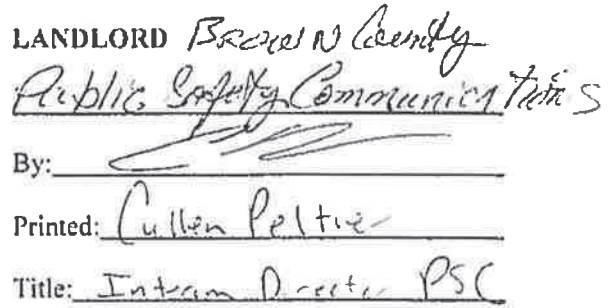 LANDLORD Brown County
Public Safety Communications
By:
Printed: Cullen Peltier
Title: Interim Director PSC